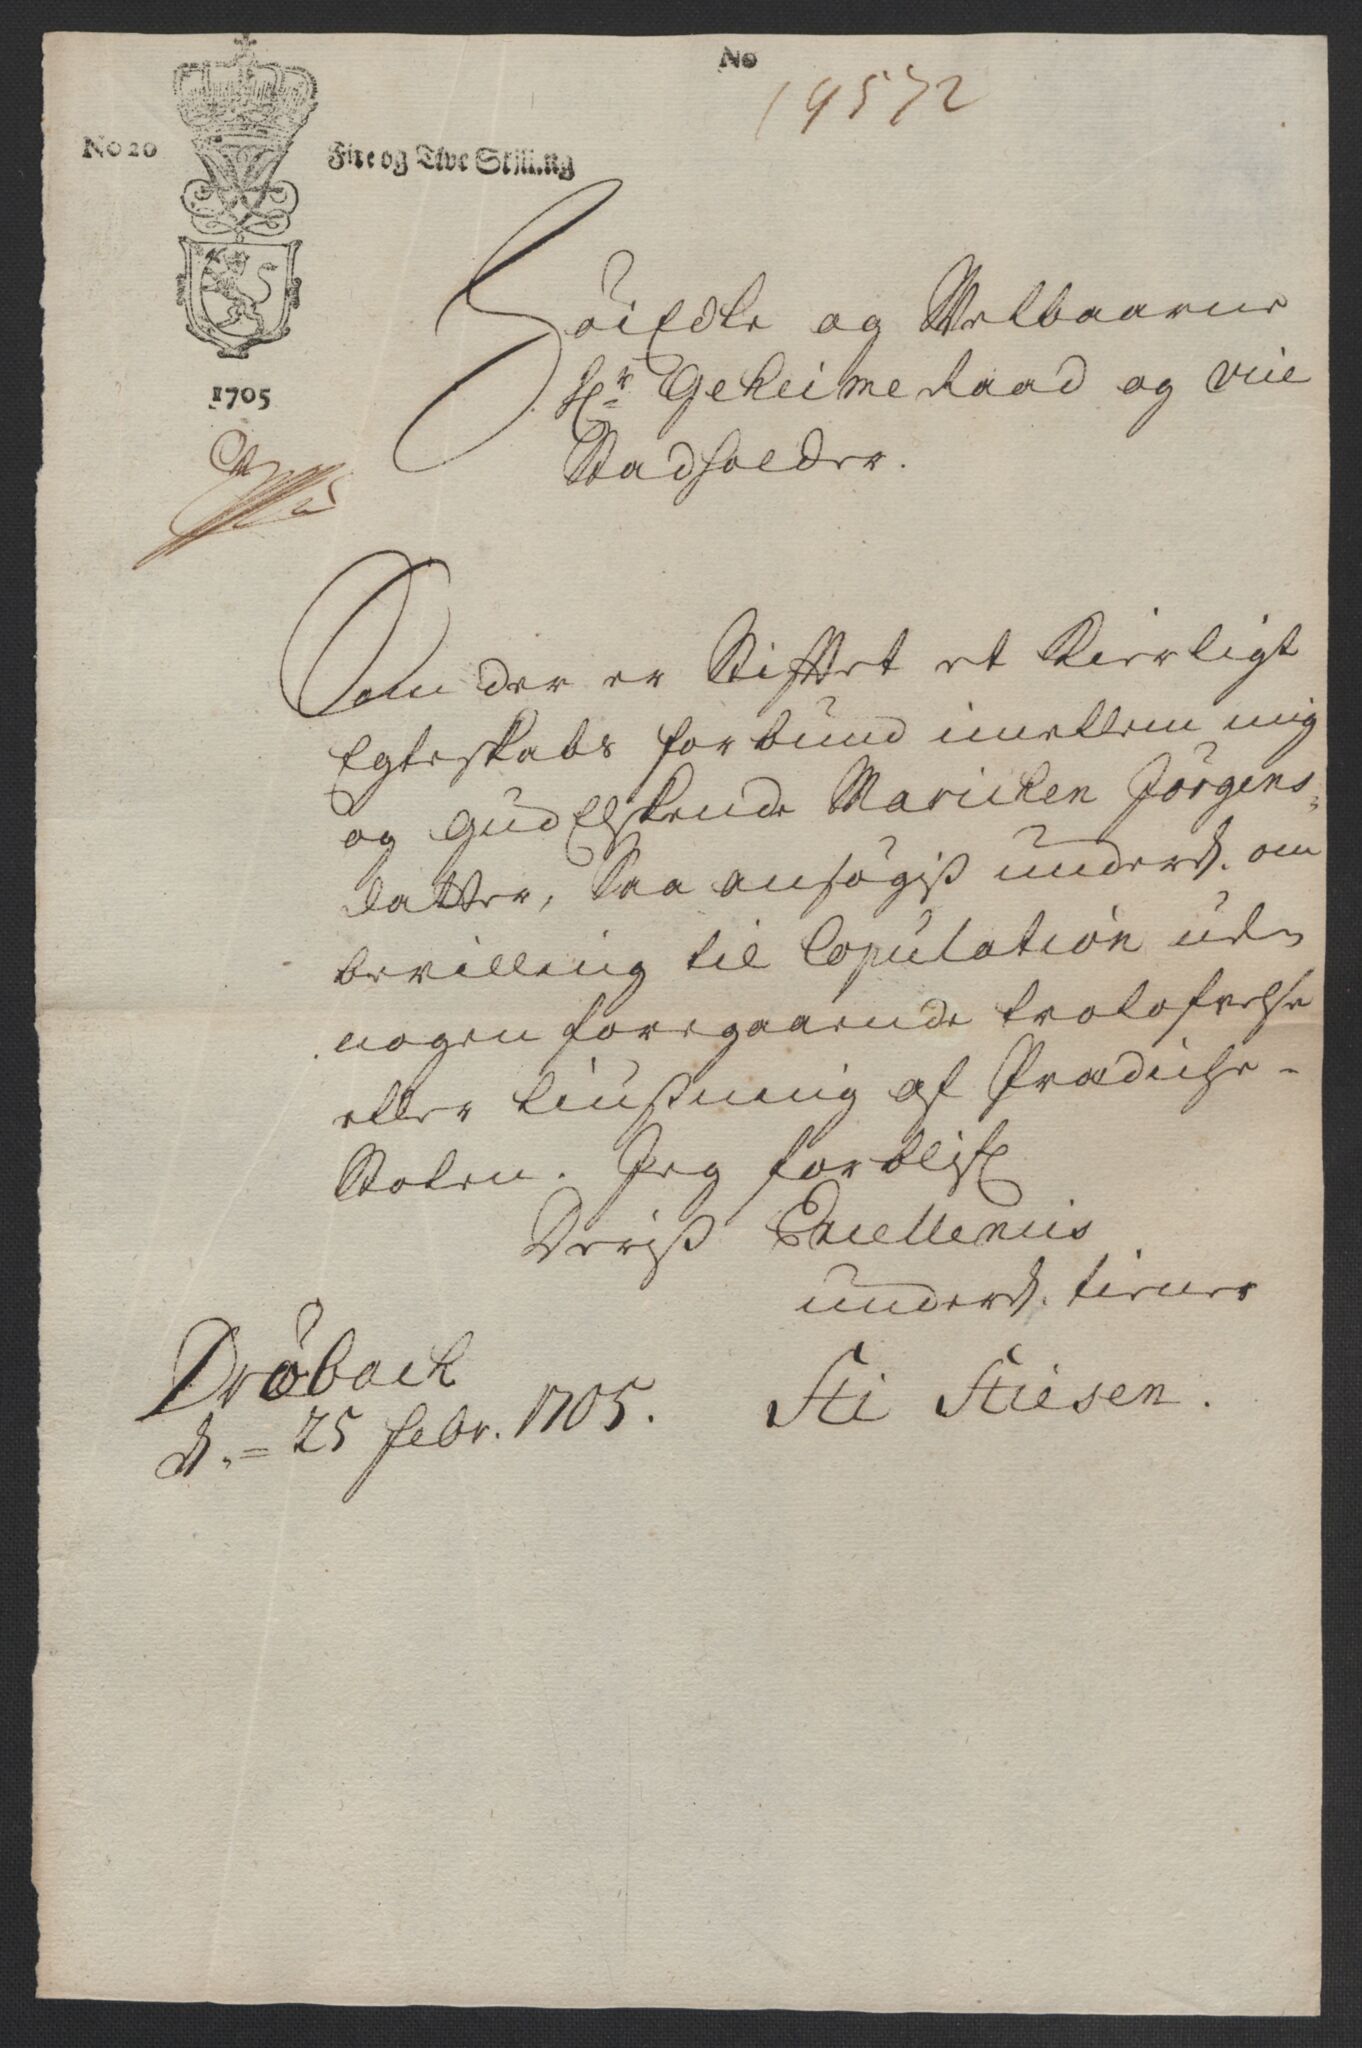 No
19572
No 20
Fire og Tive Skilling
1705
HöiEdle og Welbaarne
Hr. Geheimeraad og vice
Stadholder.
Som der er Stifftet et kierligt
Egteskabs forbund imellem mig
og GudElskende Maricken Jörgens-
datter, Saa ansögiß underd. om
bevilling til Copulation uden
nogen foregaaende trolofvelse
eller liusning af Prædicke-
Stolen. Jeg forblifr
Deriß Excellencis
underd. tiener
Sti Stiesen.
Dröback
d. 25 febr. 1705.